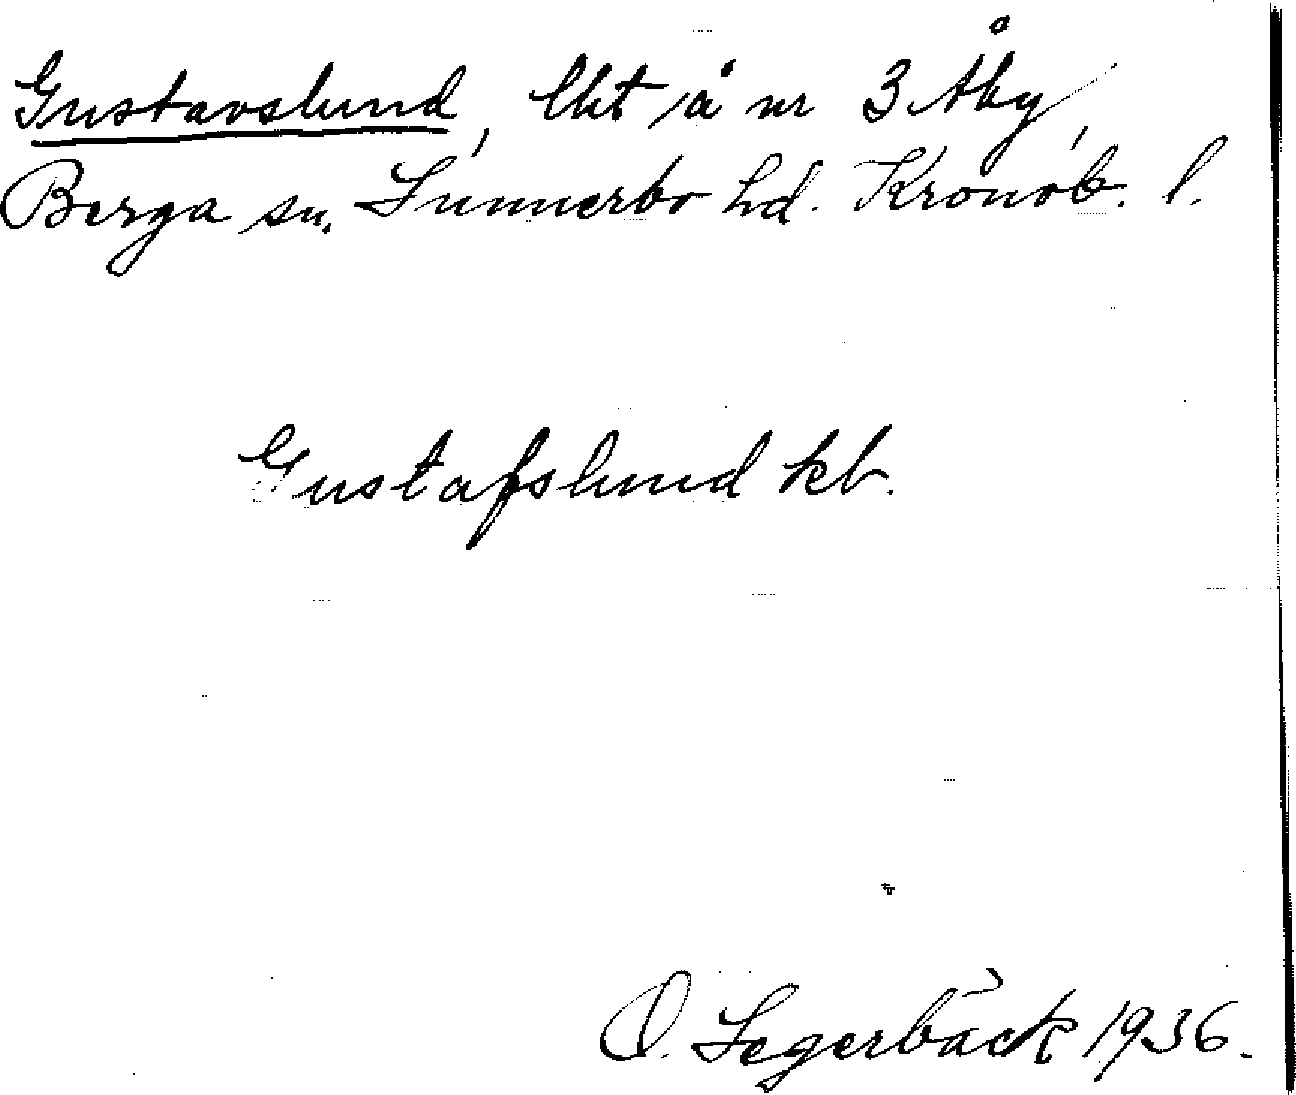 Gustavslund, lht å nr 3 Åby,
Berga sn. Sunnerbo hd. Kronob. l.
Gustafslund kb.
O. Segerbäck 1936.